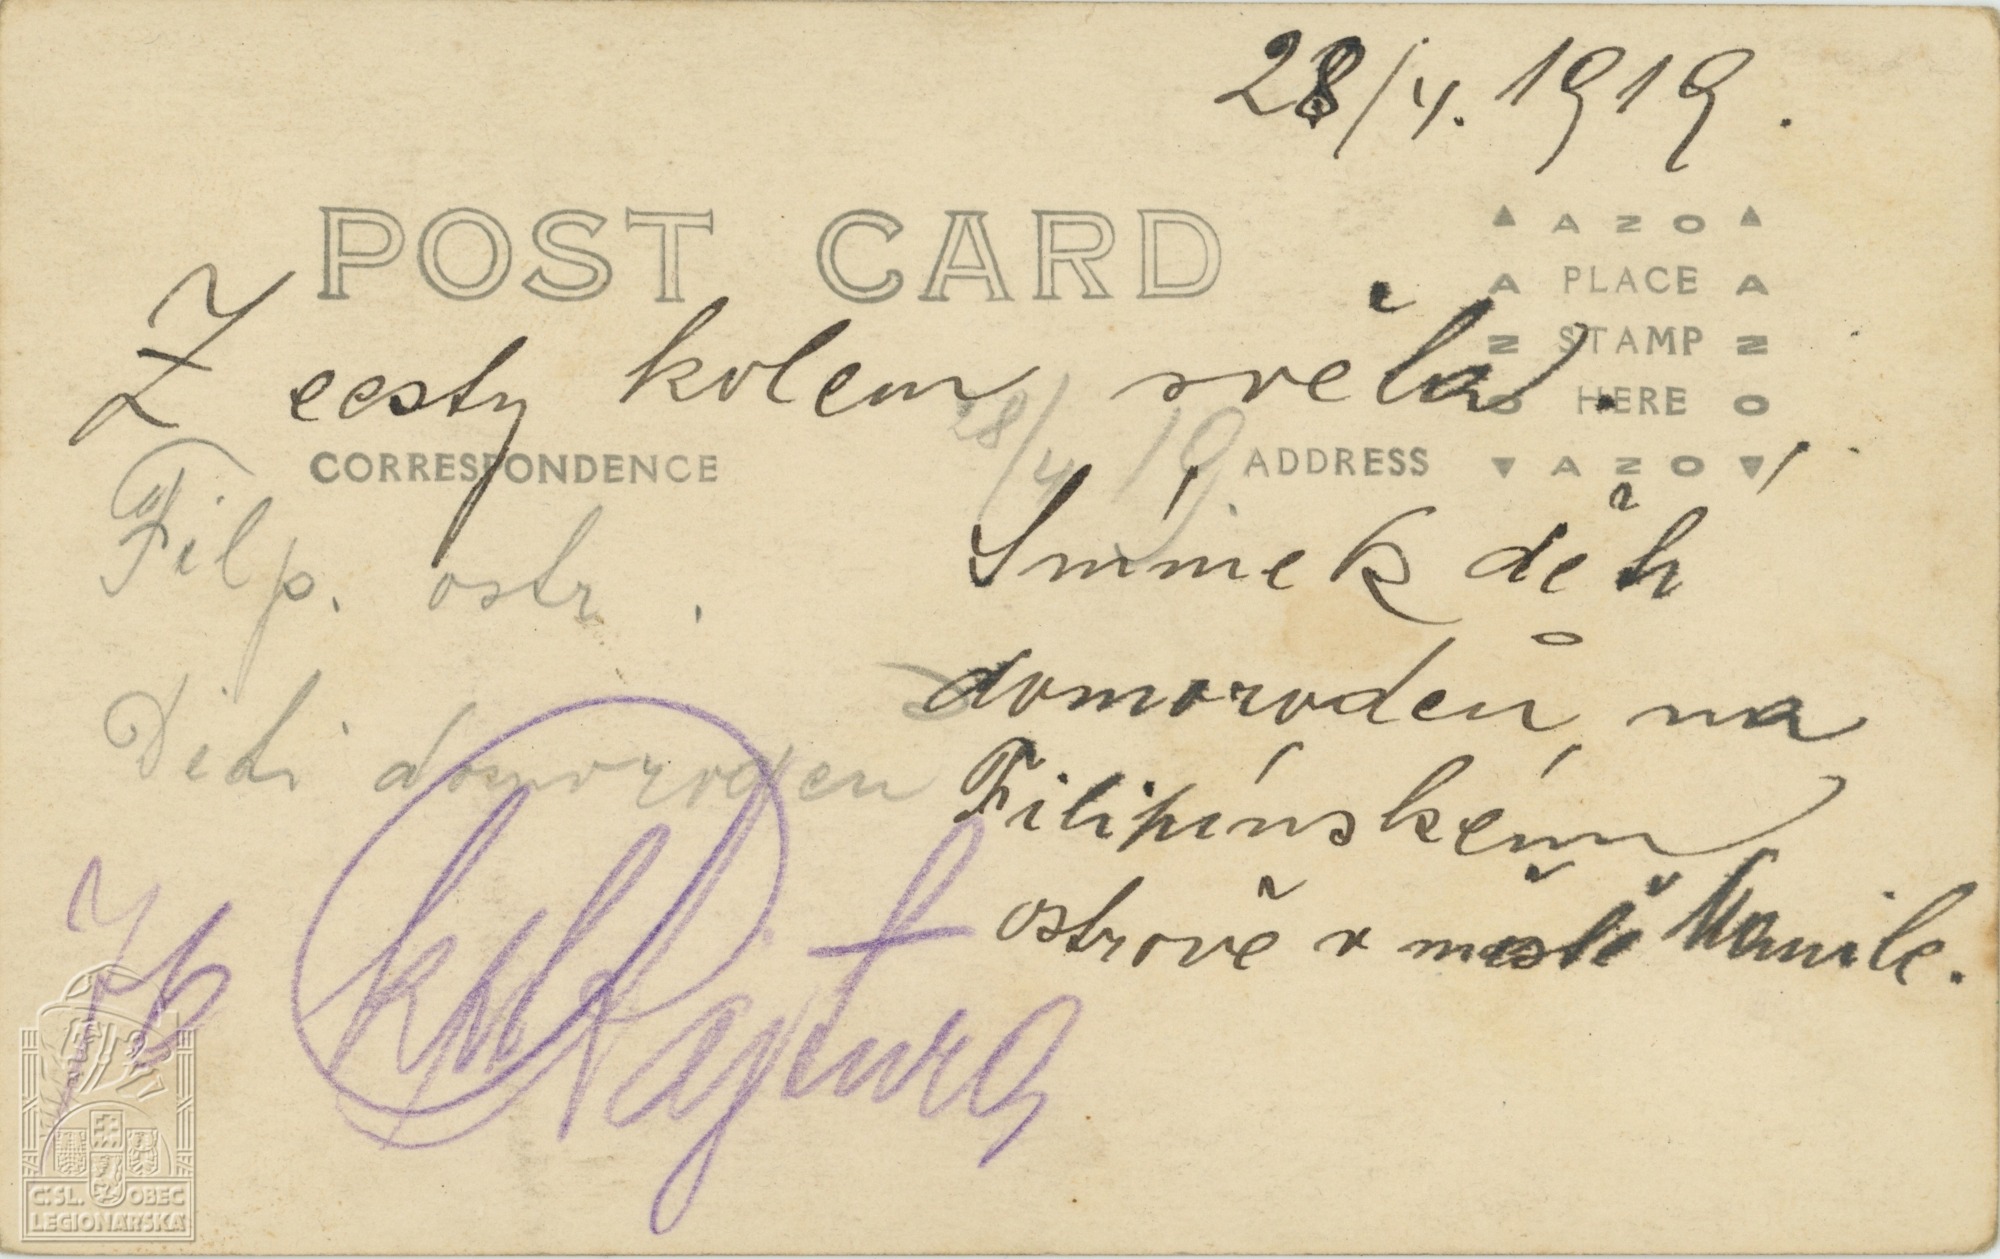 28/4. 1919.
POST CARD
AZO
PLACE
STAMP
HERE
AZO
Z cesty kolem světa.
CORRESPONDENCE
28/4 19
ADDRESS
Filp. ostr.
Snímek dětí
domorodců, na
Děti domorodců
Filipínském
ostrově v městě Manile.
Č:SL. OBEC
LEGIONÁŘSKÁ